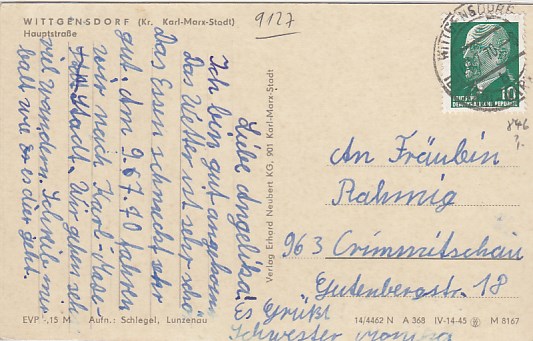 WITTGENSDORF (Kr. Karl-Marx-Stadt)
Hauptstraße
9127
WITTGENSDORF
10
DEUTSCHE
DEMOKRATISCHE REPUBLIK
846
?.
Liebe Angelika!
Ich bin gut angekom
Das Wetter ist sehr schö
Das Essen schmeckt sehr
gut. Am 9.67.70 fahren
wir nach Karl-Marx-
Stadt. Wir gehen sehr
viel wandern. Schreib mir
bald wie es dir geht.
Es Grüßt
Schwester Monika
Verlag Erhard Neubert KG, 901 Karl-Marx-Stadt
An Fräulein
Rahmig
963 Crimmitschau
Gutenbergstr. 18
EVP -,15 M Aufn.: Schlegel, Lunzenau
14/4462 N A 368 IV-14-45 M 8167